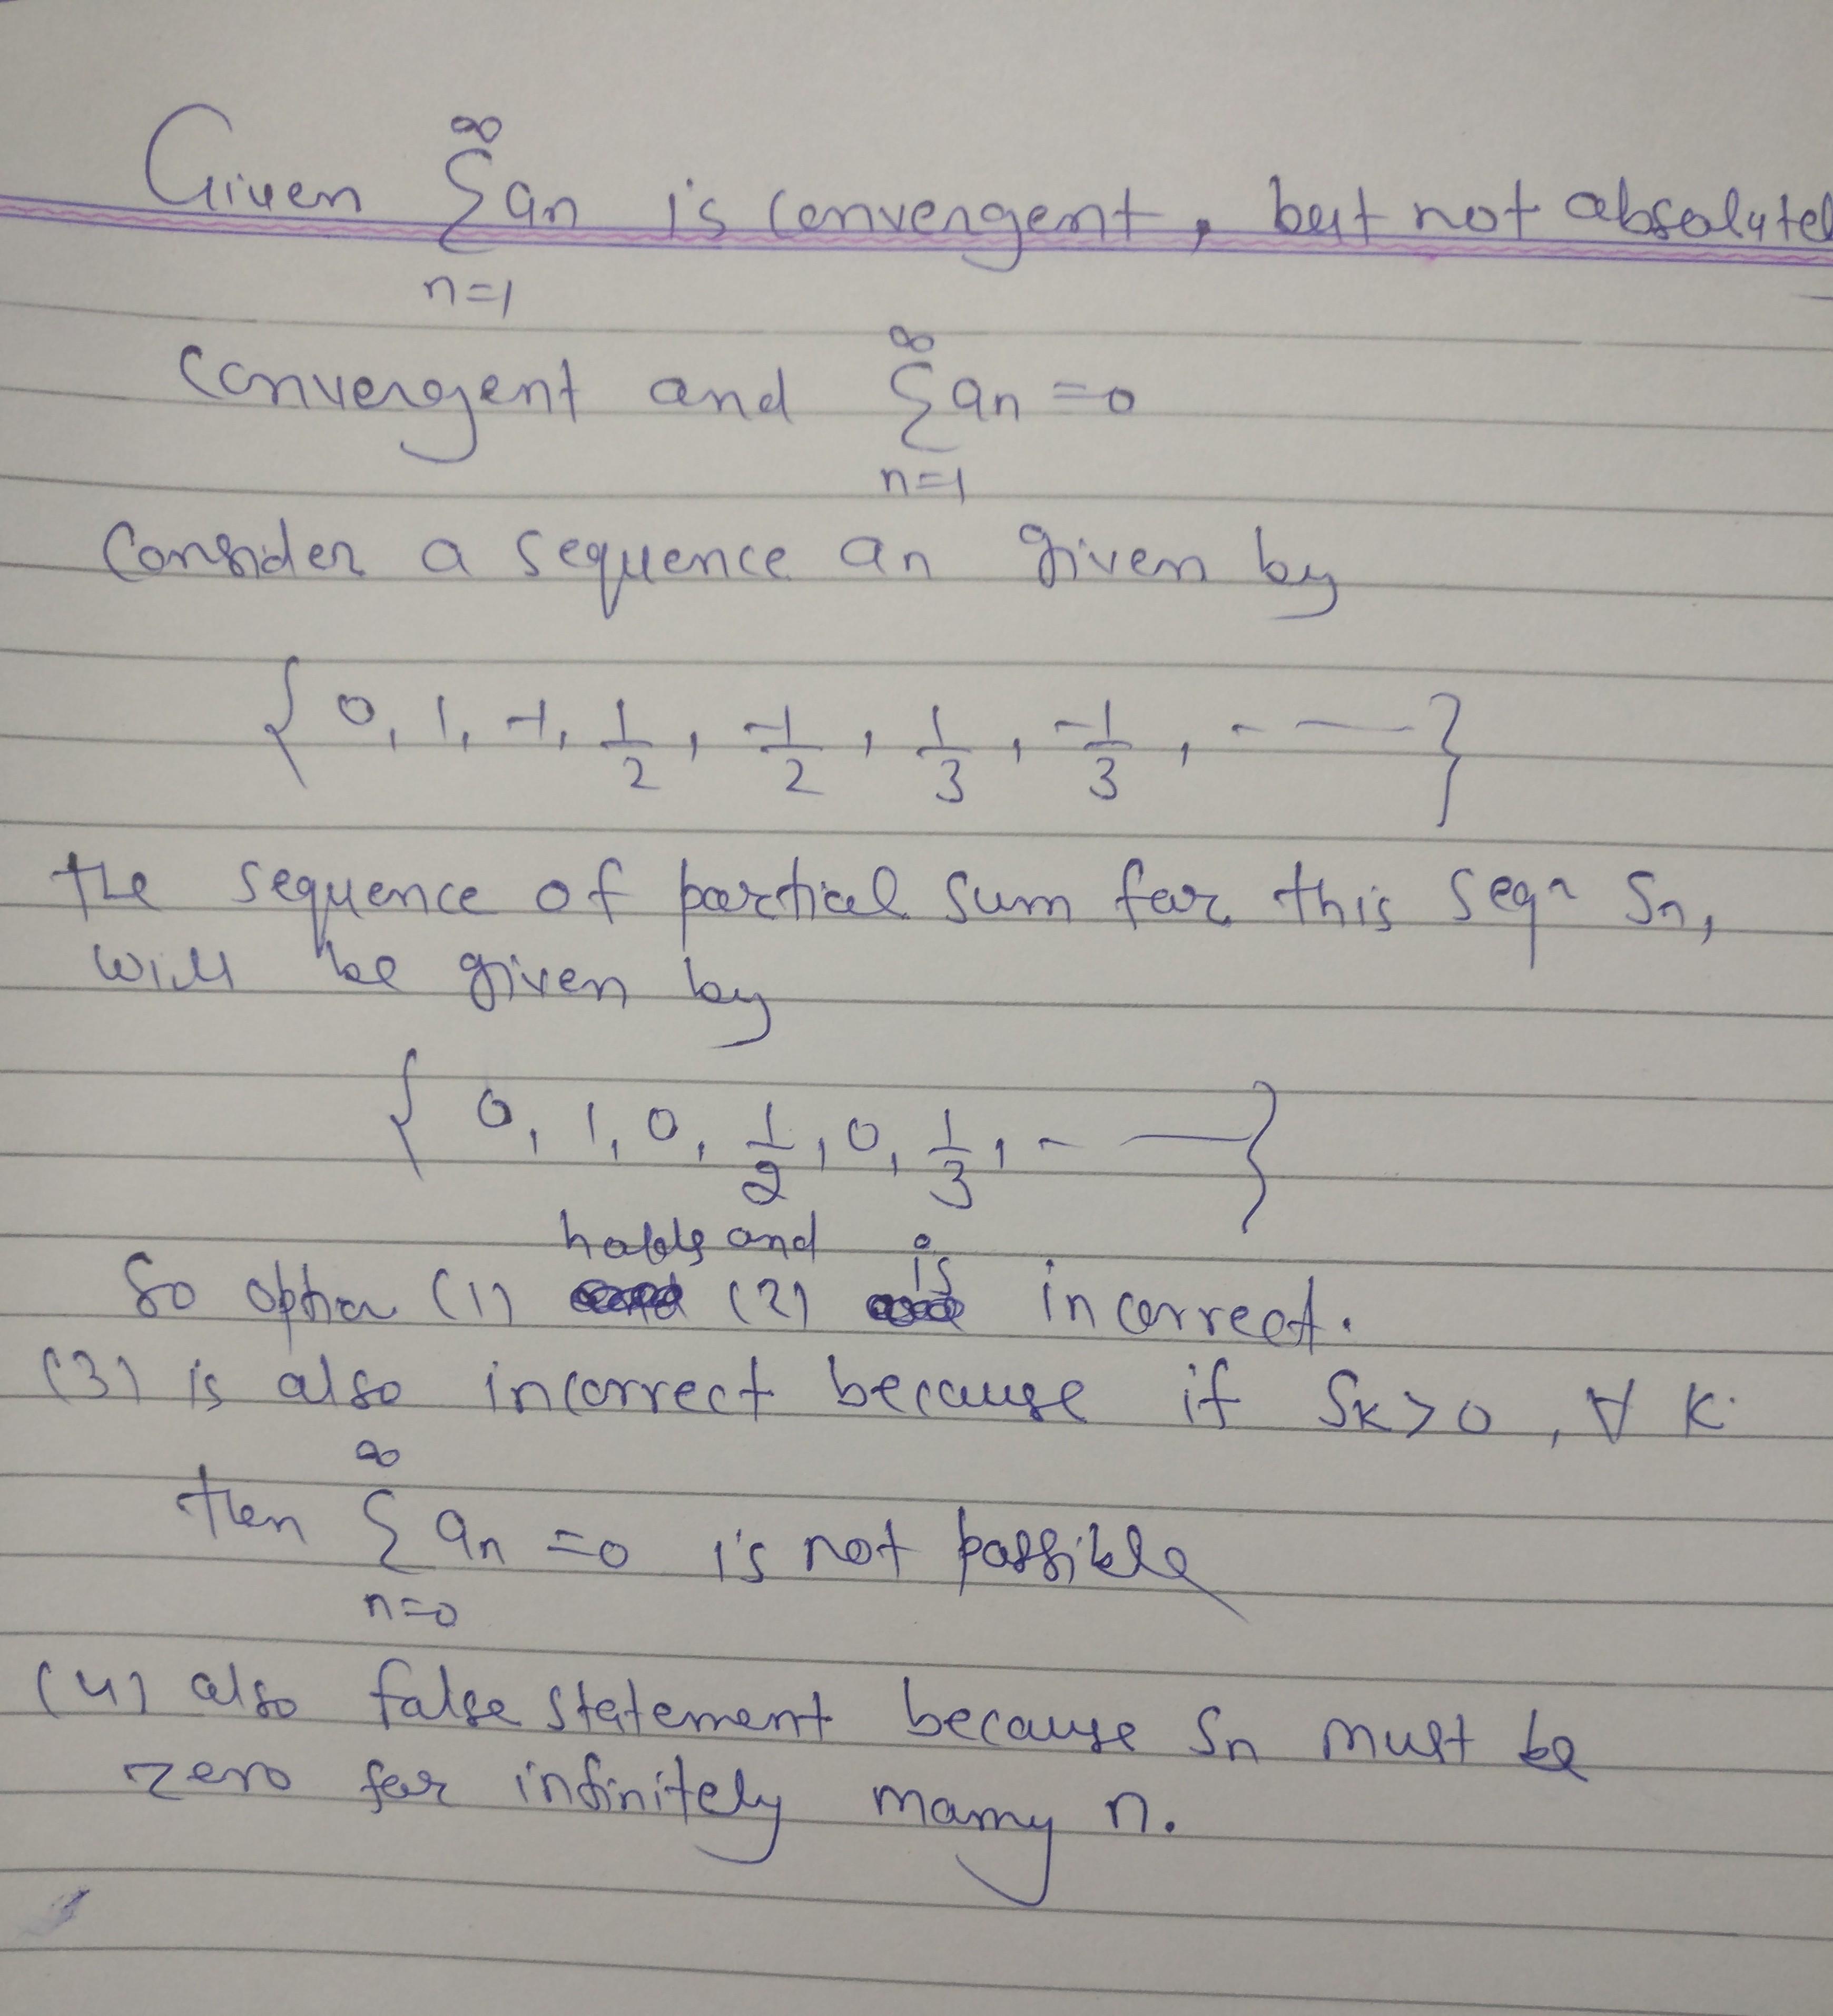 Given ∞∑n=1 an is convergent, but not absolutel
convergent and ∞∑n=1 an = 0
Consider a sequence an given by
{ 0, 1, -1, 1/2, -1/2, 1/3, -1/3, - — }
the sequence of partical sum for this seqn Sn,
will be given by
{ 0, 1, 0, 1/2, 0, 1/3, - — }
So option (1) holds and (2) is incorrect.
(3) is also incorrect because if Sk>0, ∀ k.
then ∞∑n=0 an = 0 is not possible
(4) also false statement because Sn must be
zero for infinitely many n.